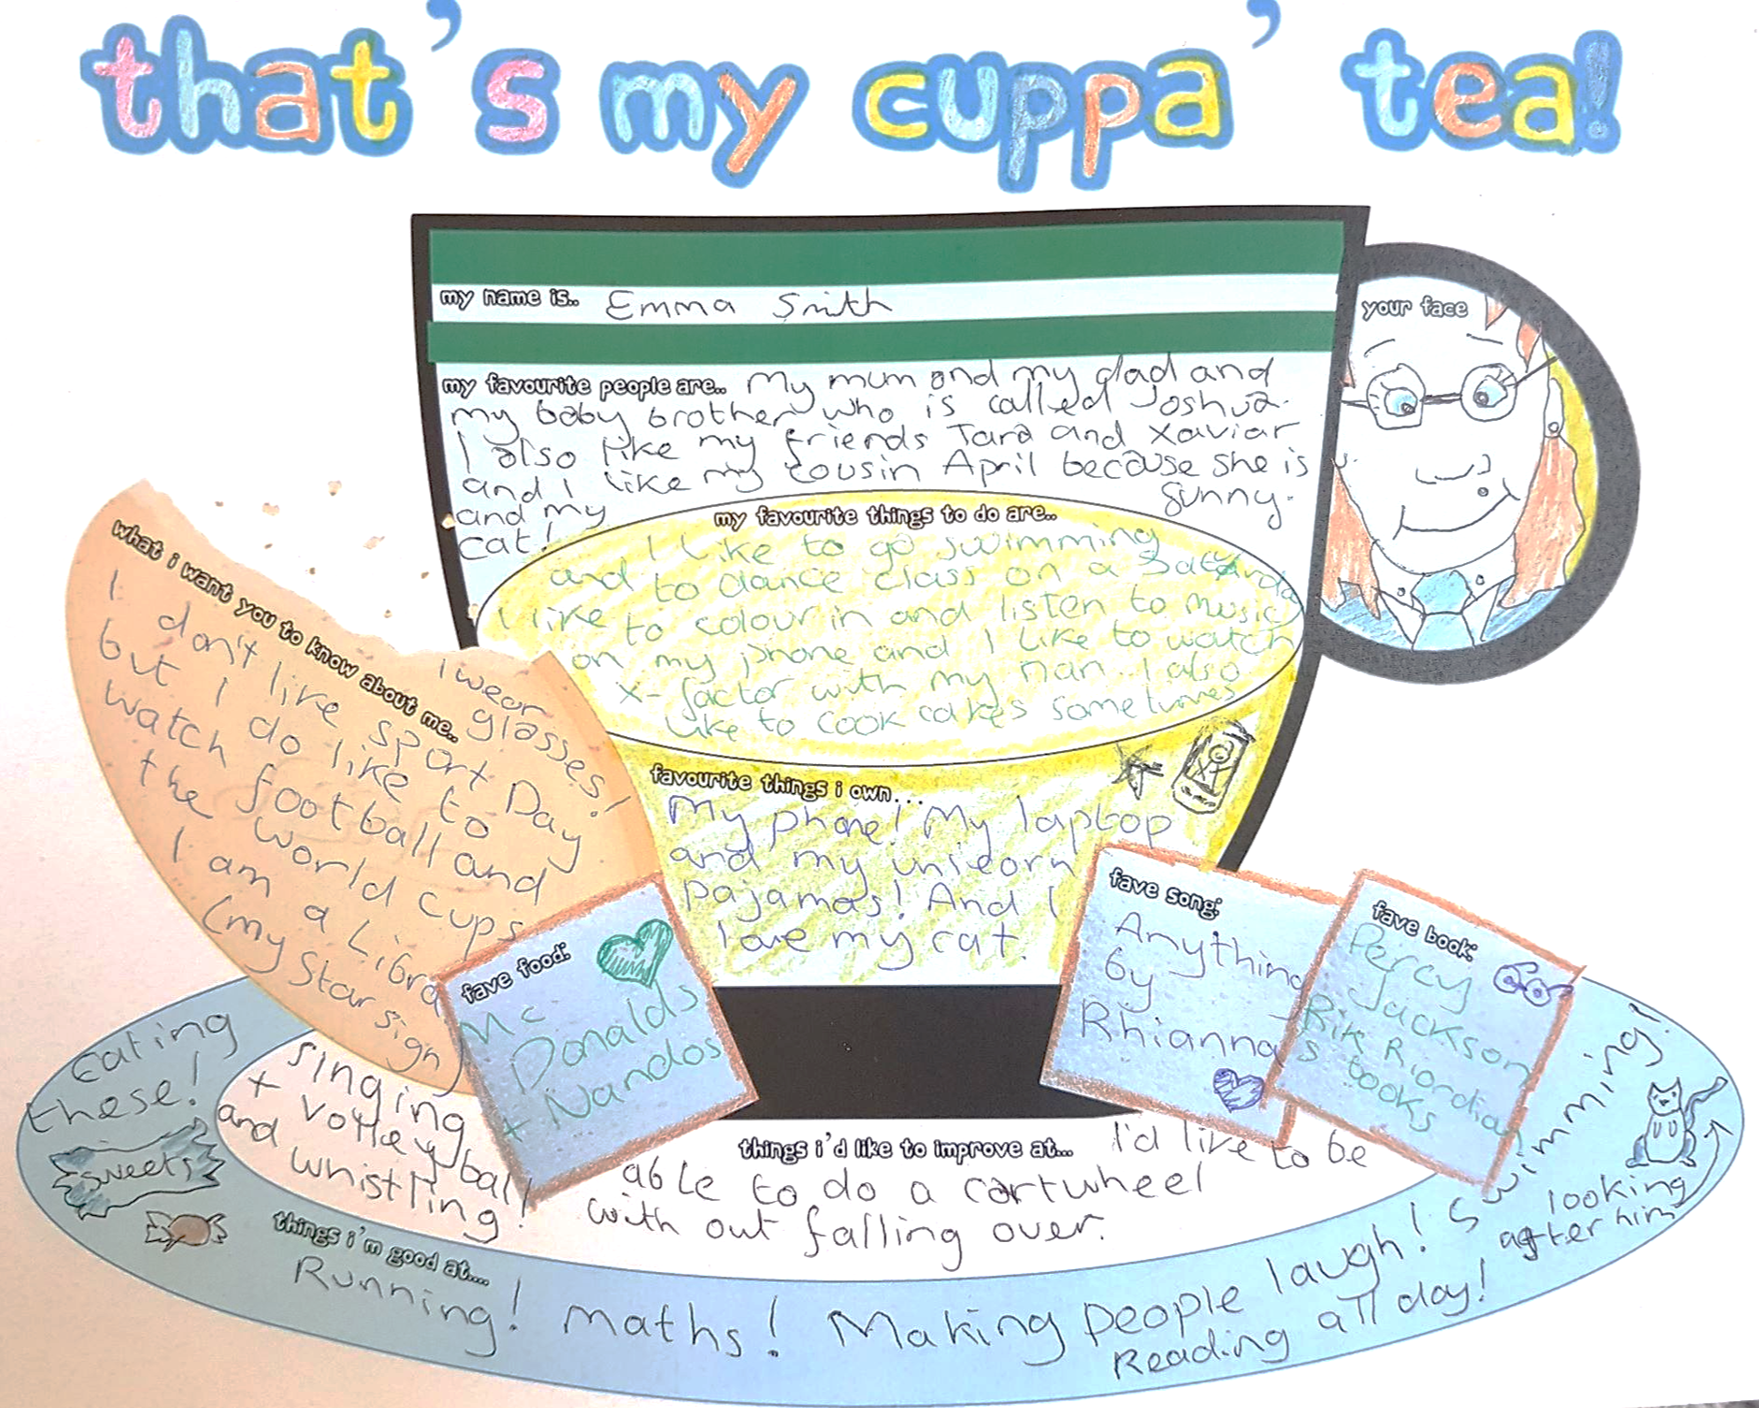 that's my cuppa' tea!
my name is.. Emma Smith
your face
my favourite people are.. My mum and my dad and
my baby brother who is called Joshua.
I also like my friends Tara and Xaviar
and I like my cousin April because she is
funny.
and my
cat!
my favourite things to do are..
I like to go swimming
and to dance class on a Saturda
I like to colour in and listen to music
on my phone and I like to watch
x-factor with my nan I also
like to cook cakes sometimes
what i want you to know about me..
I wear
glasses!
I don't like sport Day
but I do like to
watch football and
the world cups
I am a Libra
(my star sign)
favourite things i own...
My phone! My laptop
and my unicorn
pajamas! And I
love my cat.
fave food:
Mc
Donalds
+ Nandos
fave song:
Anything
by
Rhianna
fave book:
Percy
Jackson
Rik Riordian
s books
things i'd like to improve at... I'd like to be
able to do a cartwheel
with out falling over.
singing
+ volleyball
and whistling!
things i'm good at....
Eating
these!
sweets
Running! Maths! Making people laugh! Swimming!
Reading all day!
looking
after him